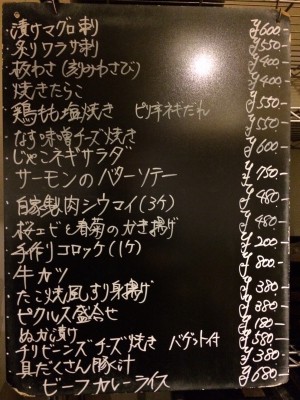 ・漬けマグロ刺 ¥600-
・炙りワラサ刺 ¥550-
・板わさ(刻みわさび) ¥400-
・焼きたらこ ¥400-
・鶏もも塩焼き ピリ辛ネギだれ ¥550-
・なす味噌チーズ焼き ¥550-
・じゃこネギサラダ ¥600-
・サーモンのバターソテー ¥750-
・自家製肉シウマイ(3ケ) ¥480-
・桜エビと春菊のかき揚げ ¥480-
・手作りコロッケ(1ケ) ¥200-
・牛カツ ¥800-
・たこ焼風すり身揚げ ¥380-
・ピクルス盛合せ ¥380-
・ぬか漬け ¥180-
・チリビーンズチーズ焼き バゲット付 ¥580-
・具だくさん豚汁 ¥380-
・ビーフカレーライス ¥680-